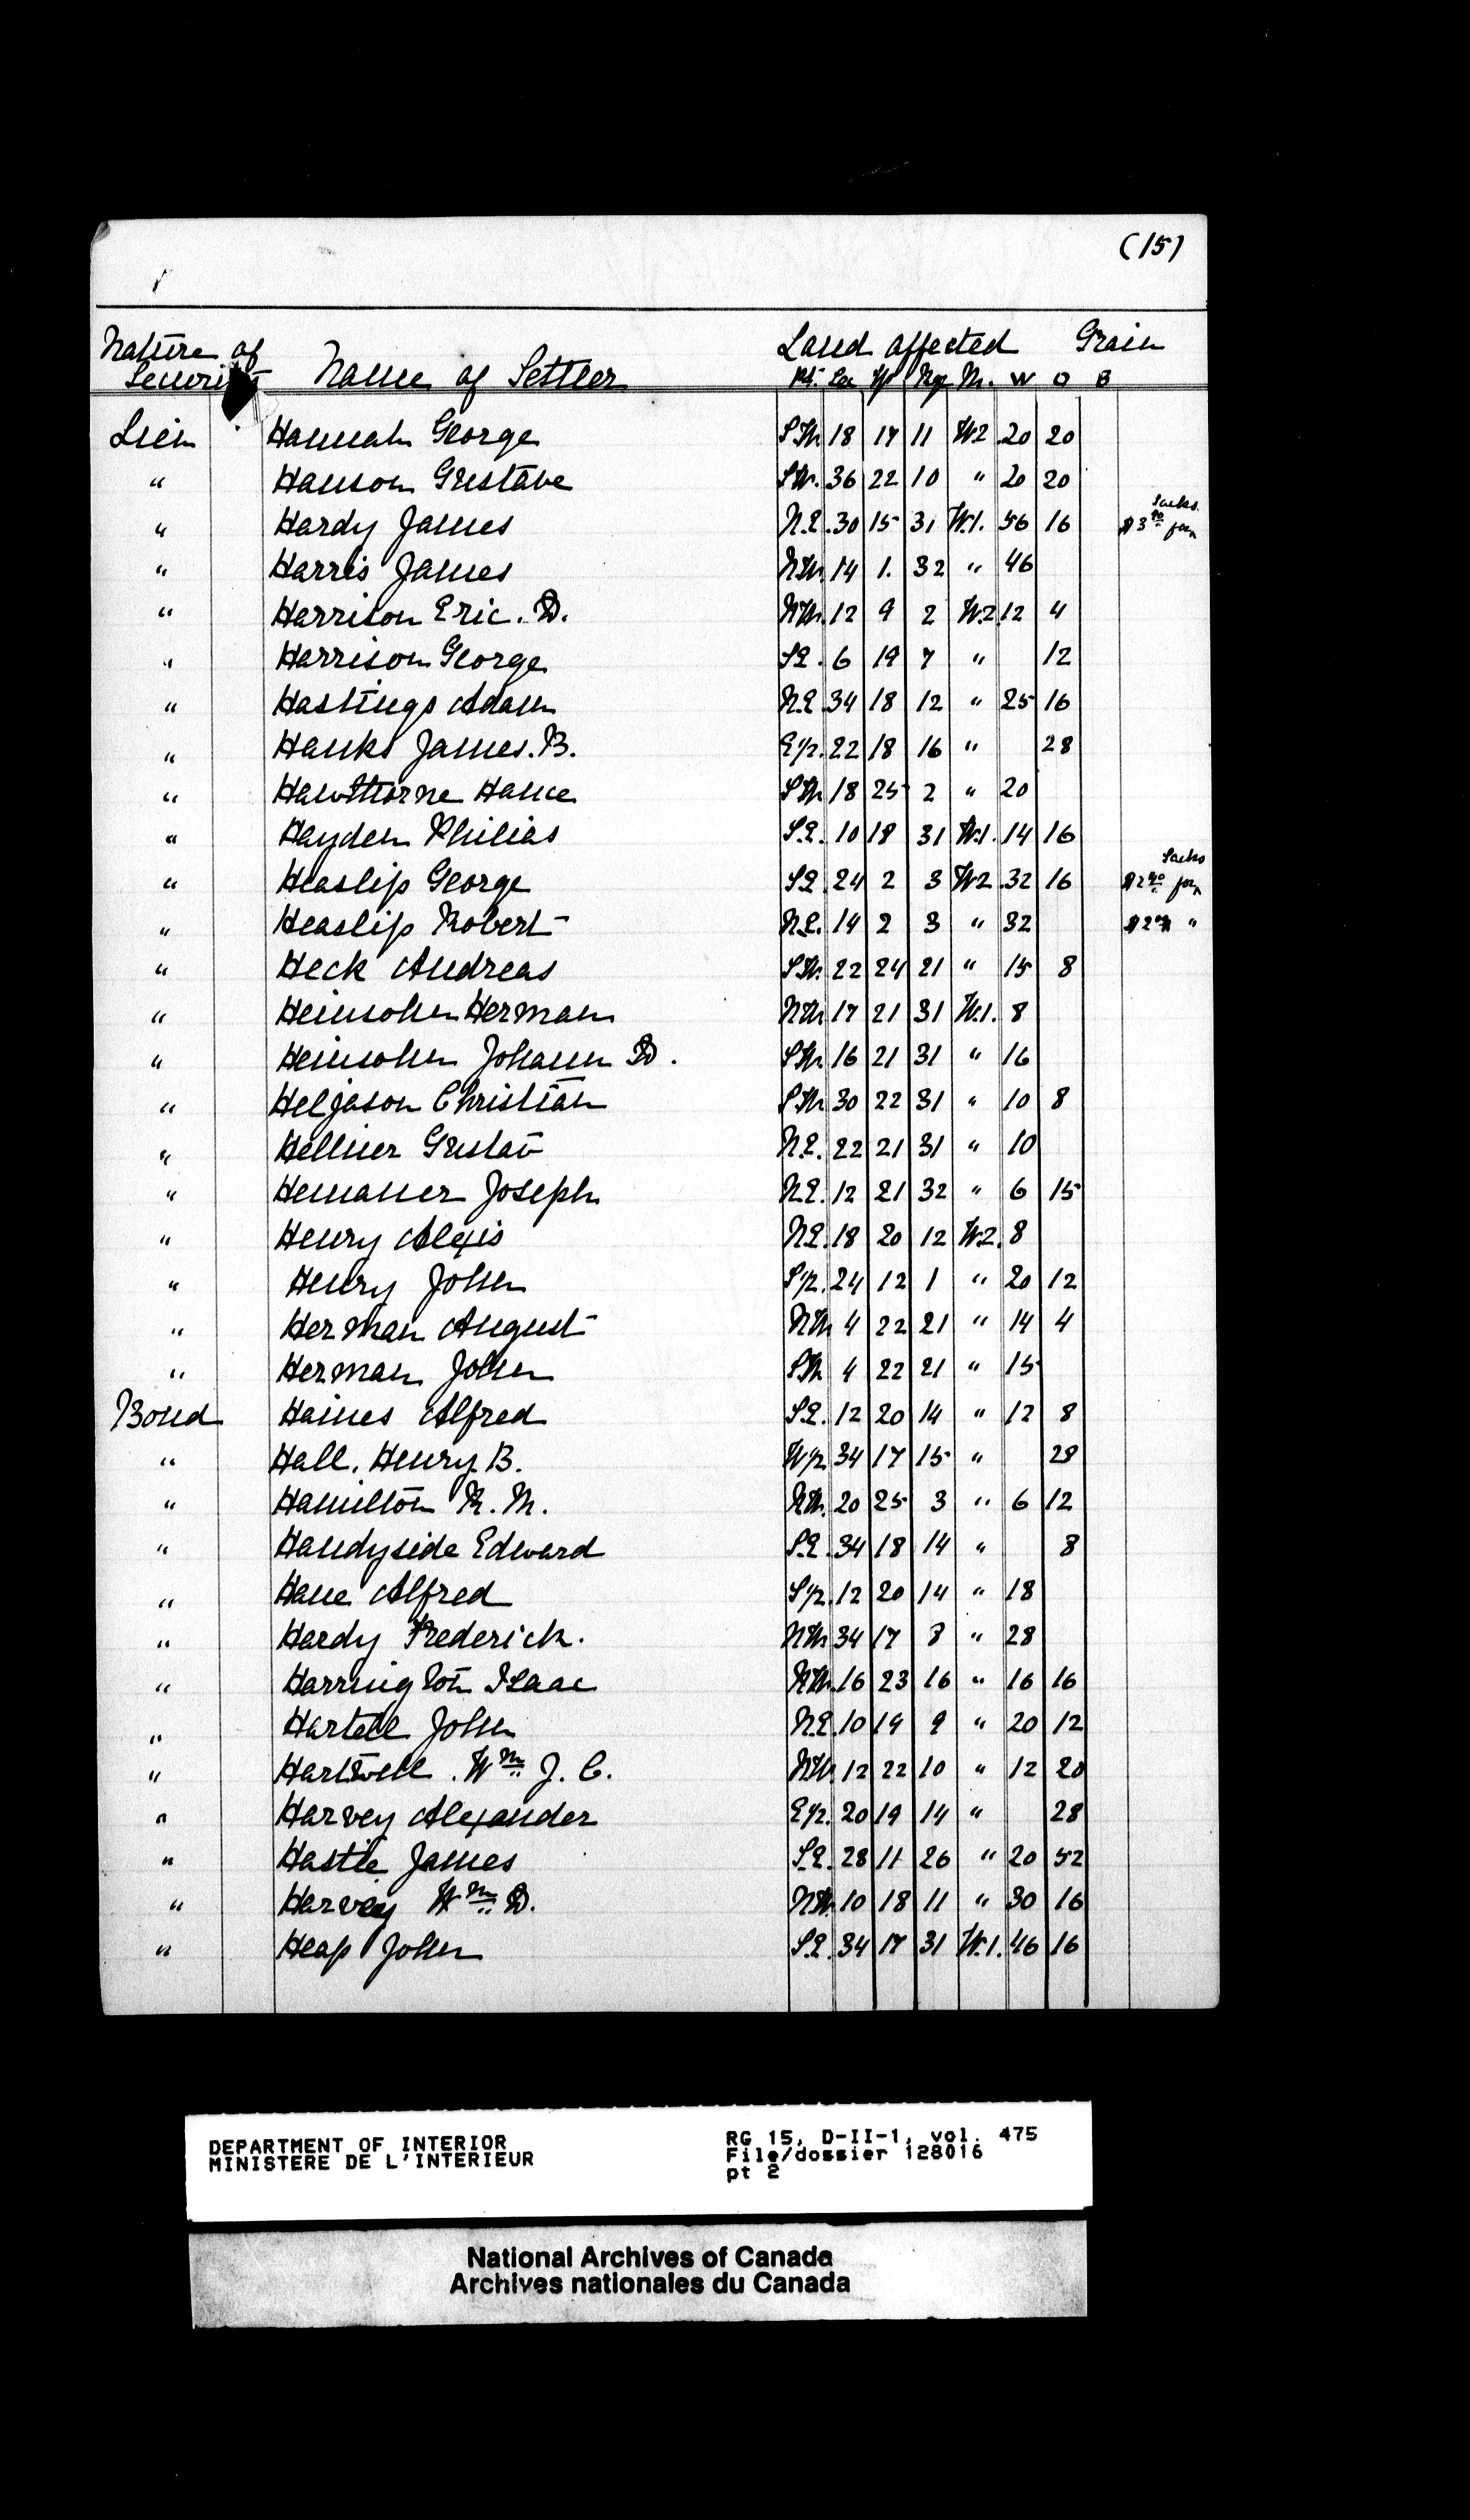 (15)
Nature of Security Name of Settler Land affected Grain
Pt. Sec Tp Rge M. W O B
Lien Hannah George S.W. 18 17 11 W2 20 20
" Hanson Gustave S.W. 36 22 10 " 20 20
" Hardy James N.E. 30 15 31 W.1. 56 16 $3 90 for Sacks.
" Harris James N.W. 14 1. 32 " 46
" Harrison Eric. D. N.W. 12 9 2 W.2 12 4
" Harrison George S.E. 6 19 7 " 12
" Hastings Adam N.E. 34 18 12 " 25 16
" Hanks James. B. E½. 22 18 16 " 28
" Hawthorne Hance S.W. 18 25 2 " 20
" Hayden Philias S.E. 10 18 31 W.1. 14 16
" Heaslip George S.E. 24 2 3 W2 32 16 $2 40 for Sacks
" Heaslip Robert N.E. 14 2 3 " 32 "
" Heck Andreas S.W. 22 24 21 " 15 8
" Heinsohn Herman N.W. 17 21 31 W.1. 8
" Heinsohn Johann D. S.W. 16 21 31 " 16
" Heljason Christian S.W. 30 22 31 " 10 8
" Hellner Gustav N.E. 22 21 31 " 10
" Hemauer Joseph N.E. 12 21 32 " 6 15
" Henry Alexis N.E. 18 20 12 W2. 8
" Henry John S½. 24 12 1 " 20 12
" Herman August N.W. 4 22 21 " 14 4
" Herman John S.W. 4 22 21 " 15
Bond Haines Alfred S.E. 12 20 14 " 12 8
" Hall. Henry. B. W½ 34 17 15 " 28
" Hamilton R. M. N.W. 20 25 3 " 6 12
" Handyside Edward S.E. 34 18 14 " 8
" Hane Alfred S½. 12 20 14 " 18
" Hardy Frederick. N.W. 34 17 8 " 28
" Harrington Isaac N.W. 16 23 16 " 16 16
" Hartell John N.E. 10 19 9 " 20 12
" Hartwell. Wm J. C. N.W. 12 22 10 " 12 20
" Harvey Alexander E½. 20 19 14 " 28
" Hastie James S.E. 28 11 26 " 20 52
" Harvey Wm D. N.W. 10 18 11 " 30 16
" Heap John S.E. 34 17 31 W.1. 46 16
DEPARTMENT OF INTERIOR
MINISTERE DE L'INTERIEUR
RG 15, D-II-1, vol. 475
File/dossier 128016
pt 2
National Archives of Canada
Archives nationales du Canada